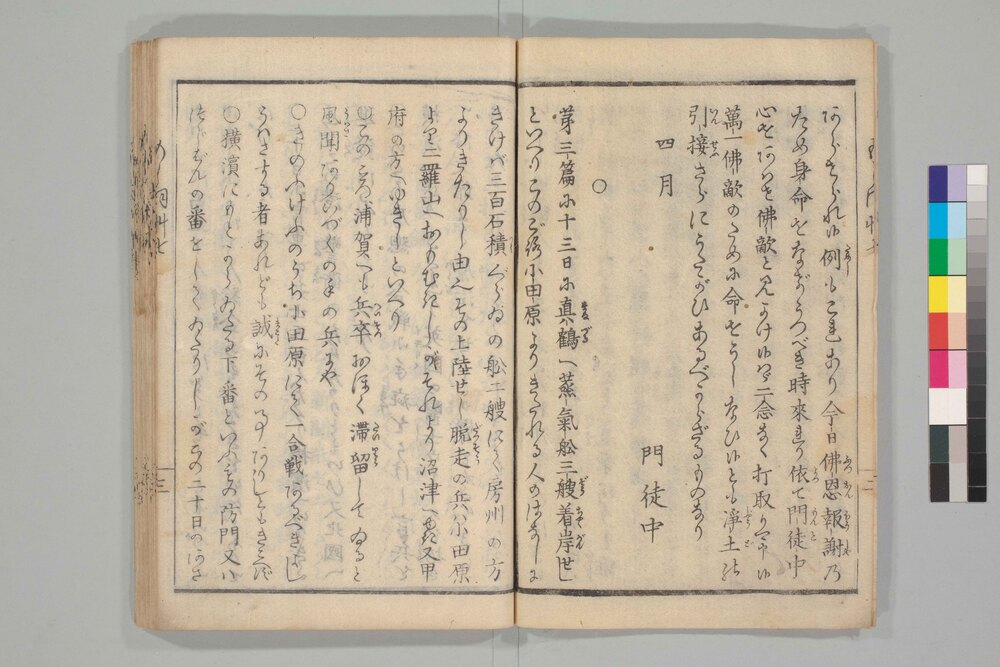 あらざられば例もこれあり今日佛恩報謝乃
ため身命をなげうつべき時來れり依て門徒中
心をあはせ佛敵と見かけ候はゞ二念なく打取り可申候
萬一佛敵のために命をうしなひ候とも淨土の
引接さらにうたがひあるべからざるものなり
四月
門徒中
○
第三篇に十三日に真鶴へ蒸氣舩三艘着岸せし
といへりこのごろ小田原よりきたれる人のはなしに
きけば三百石積ぐらゐの舩二艘にて房州の方
よりきたりし由へその上陸せし脱走の兵は小田原
より二羅山へおもむきしがそれより沼津へ出又甲
府の方へゆき退といへり
○このごろ浦賀へも兵卒おほく滞留してゐると
風聞ありいづくの手の兵にや
○きのふけふのうち小田原にて一合戦あるべきよし
うはさする者あれども誠にその事ありしともきこへず
○横濱にもとからゐたる下番といふその防門又は
の番をしてゐたりしがこの二十日の